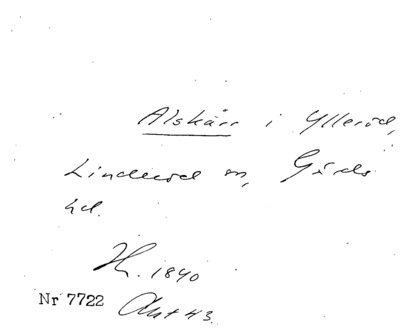 Alskärr i Ylleröd,
Linderöd sn, Gärds
hd.
H. 1840
Nr 7722 Akt 43